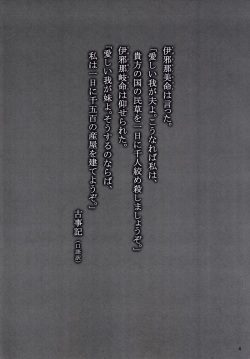 伊邪那美命は言った。
「愛しい我が夫よ。こうなれば私は、
貴方の国の民草を一日に千人絞め殺しましょうぞ。」
伊邪那岐命は仰せられた。
「愛しい我が妹よ。そうするのならば、
私は一日に千五百の産屋を建てようぞ。」
古事記（口語訳）